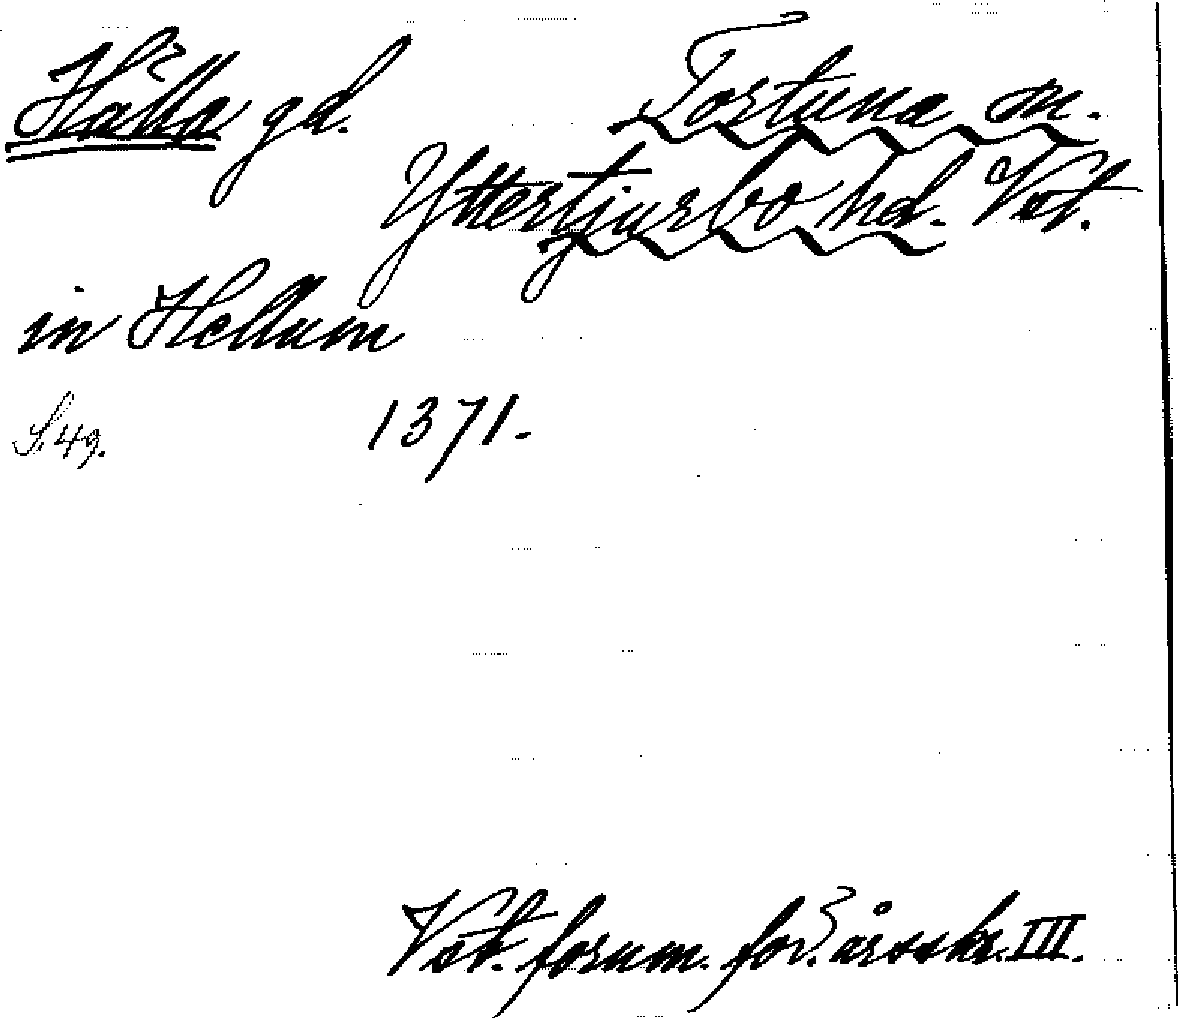 Hälla gd. Tortuna sn.
Yttertjurbo hd. Vst.
in Hellum
S. 49. 1371.
Vst. fornm. för. årsskr. III.